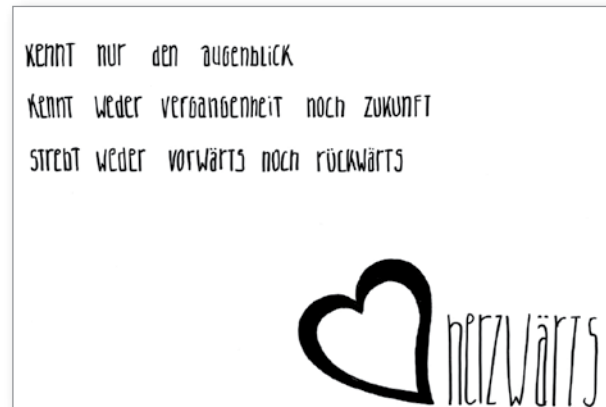 kennt nur den augenblick
kennt weder vergangenheit noch zukunft
strebt weder vorwärts noch rückwärts
herzwärts